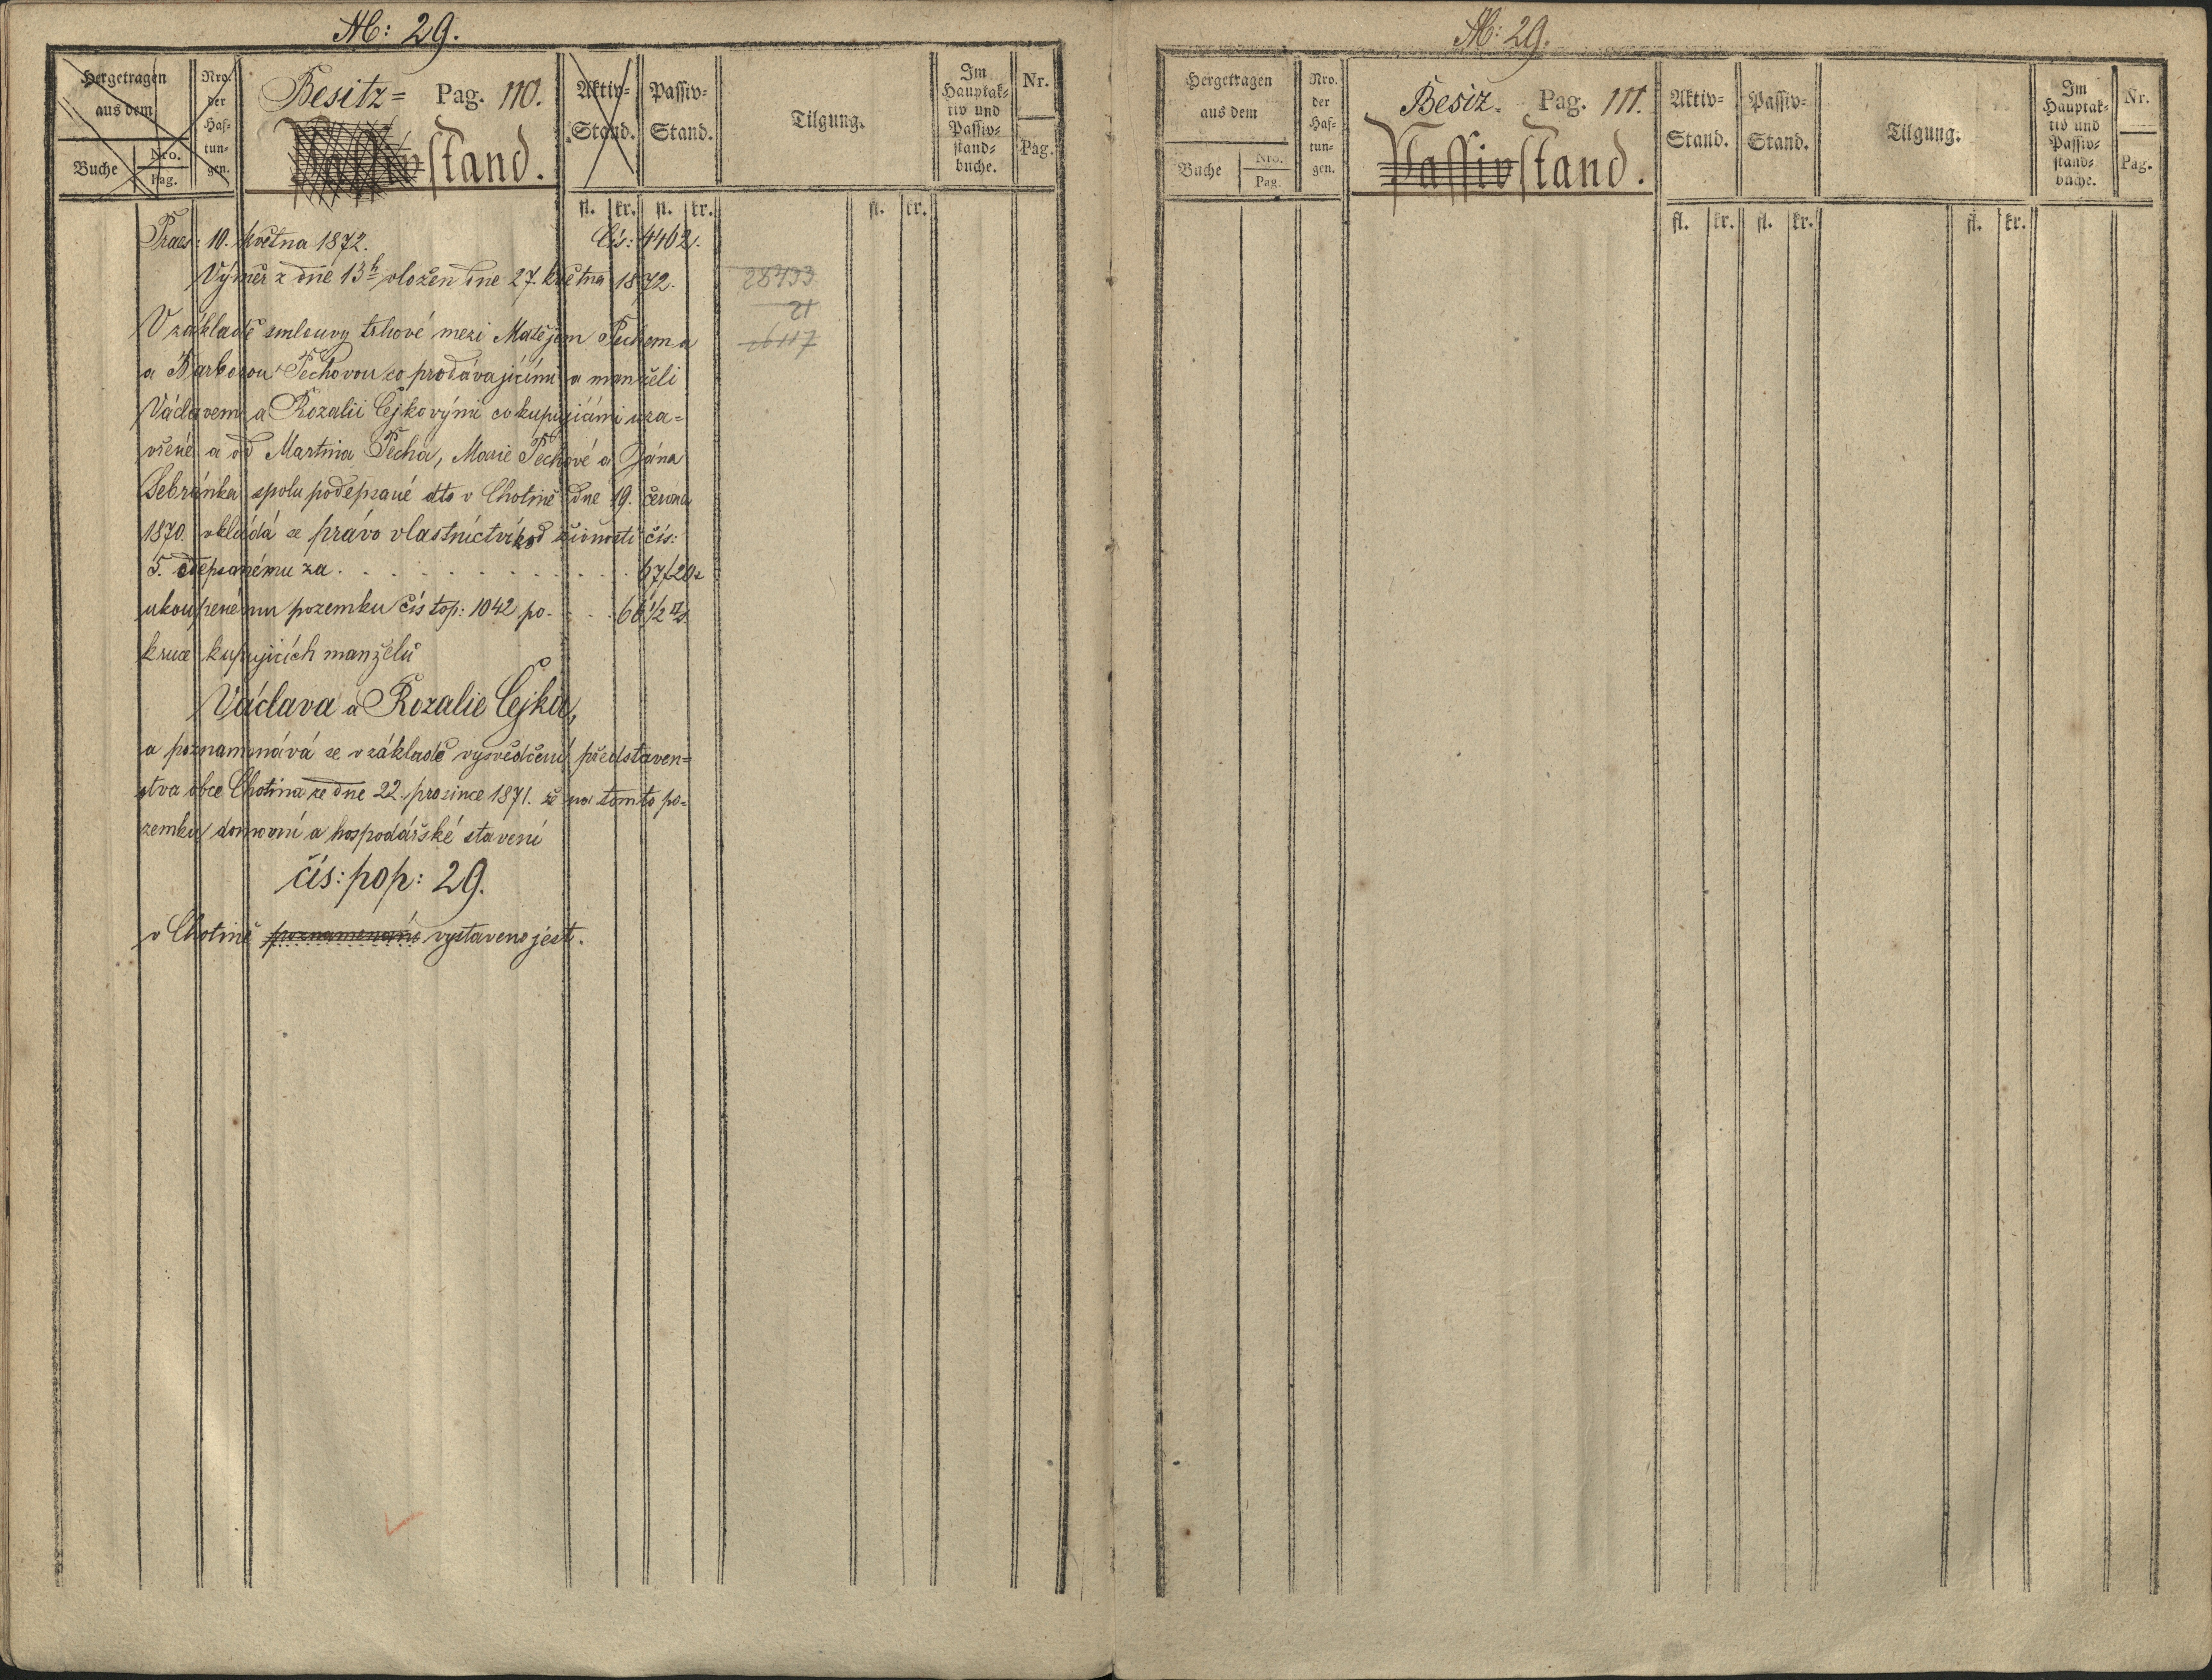 N: 29.
Hergetragen aus dem
Buche Nro. Pag.
Nro. der Haf-tun-gen.
Besitz= Pag. 110.
Passivstand.
Aktiv-Stand.
Passiv-Stand.
Tilgung.
Im Hauptak-tiv und Passiv-stand-buche.
Nr.
Pag.
fl. kr. fl. kr. fl. kr.
Praes: 10. května 1872. Čís: 4462.
Výměr z dne 13ho vložen dne 27. května 1872.
28433
21
26117
V základě smlouvy trhové mezi Matějem Pechem a
a Barborou Pechovou co prodávajícími a manželi
Václavem a Rozalii Cejkovými co kupujícími uza=
vřené a od Martina Pecha, Marie Pechové a Jána
Sebránka spolu podepsané dto v Chotině dne 19. června
1870. vkládá se právo vlastnictví k od živnosti čís:
5. odepsanému za . . . . . . . . . . . 67 f 20 x
ukoupenému pozemku čís top: 1042 po . . . 66 1/2 □°
k ruce kupujících manželů
Václava a Rozalie Cejka,
a poznamenává se v základě vysvědčení představen=
stva obce Chotina ze dne 22. prosince 1871. že na tomto po=
zemku domovní a hospodářské stavení
čís: pop: 29.
v Chotině poznamenané vystaveno jest.
N: 29.
Hergetragen aus dem
Buche Nro. Pag.
Nro. der Haf-tun-gen.
Besiz- Pag. 111.
Passivstand.
Aktiv-Stand.
Passiv-Stand.
Tilgung.
Im Hauptak-tiv und Passiv-stand-buche.
Nr.
Pag.
fl. kr. fl. kr. fl. kr.